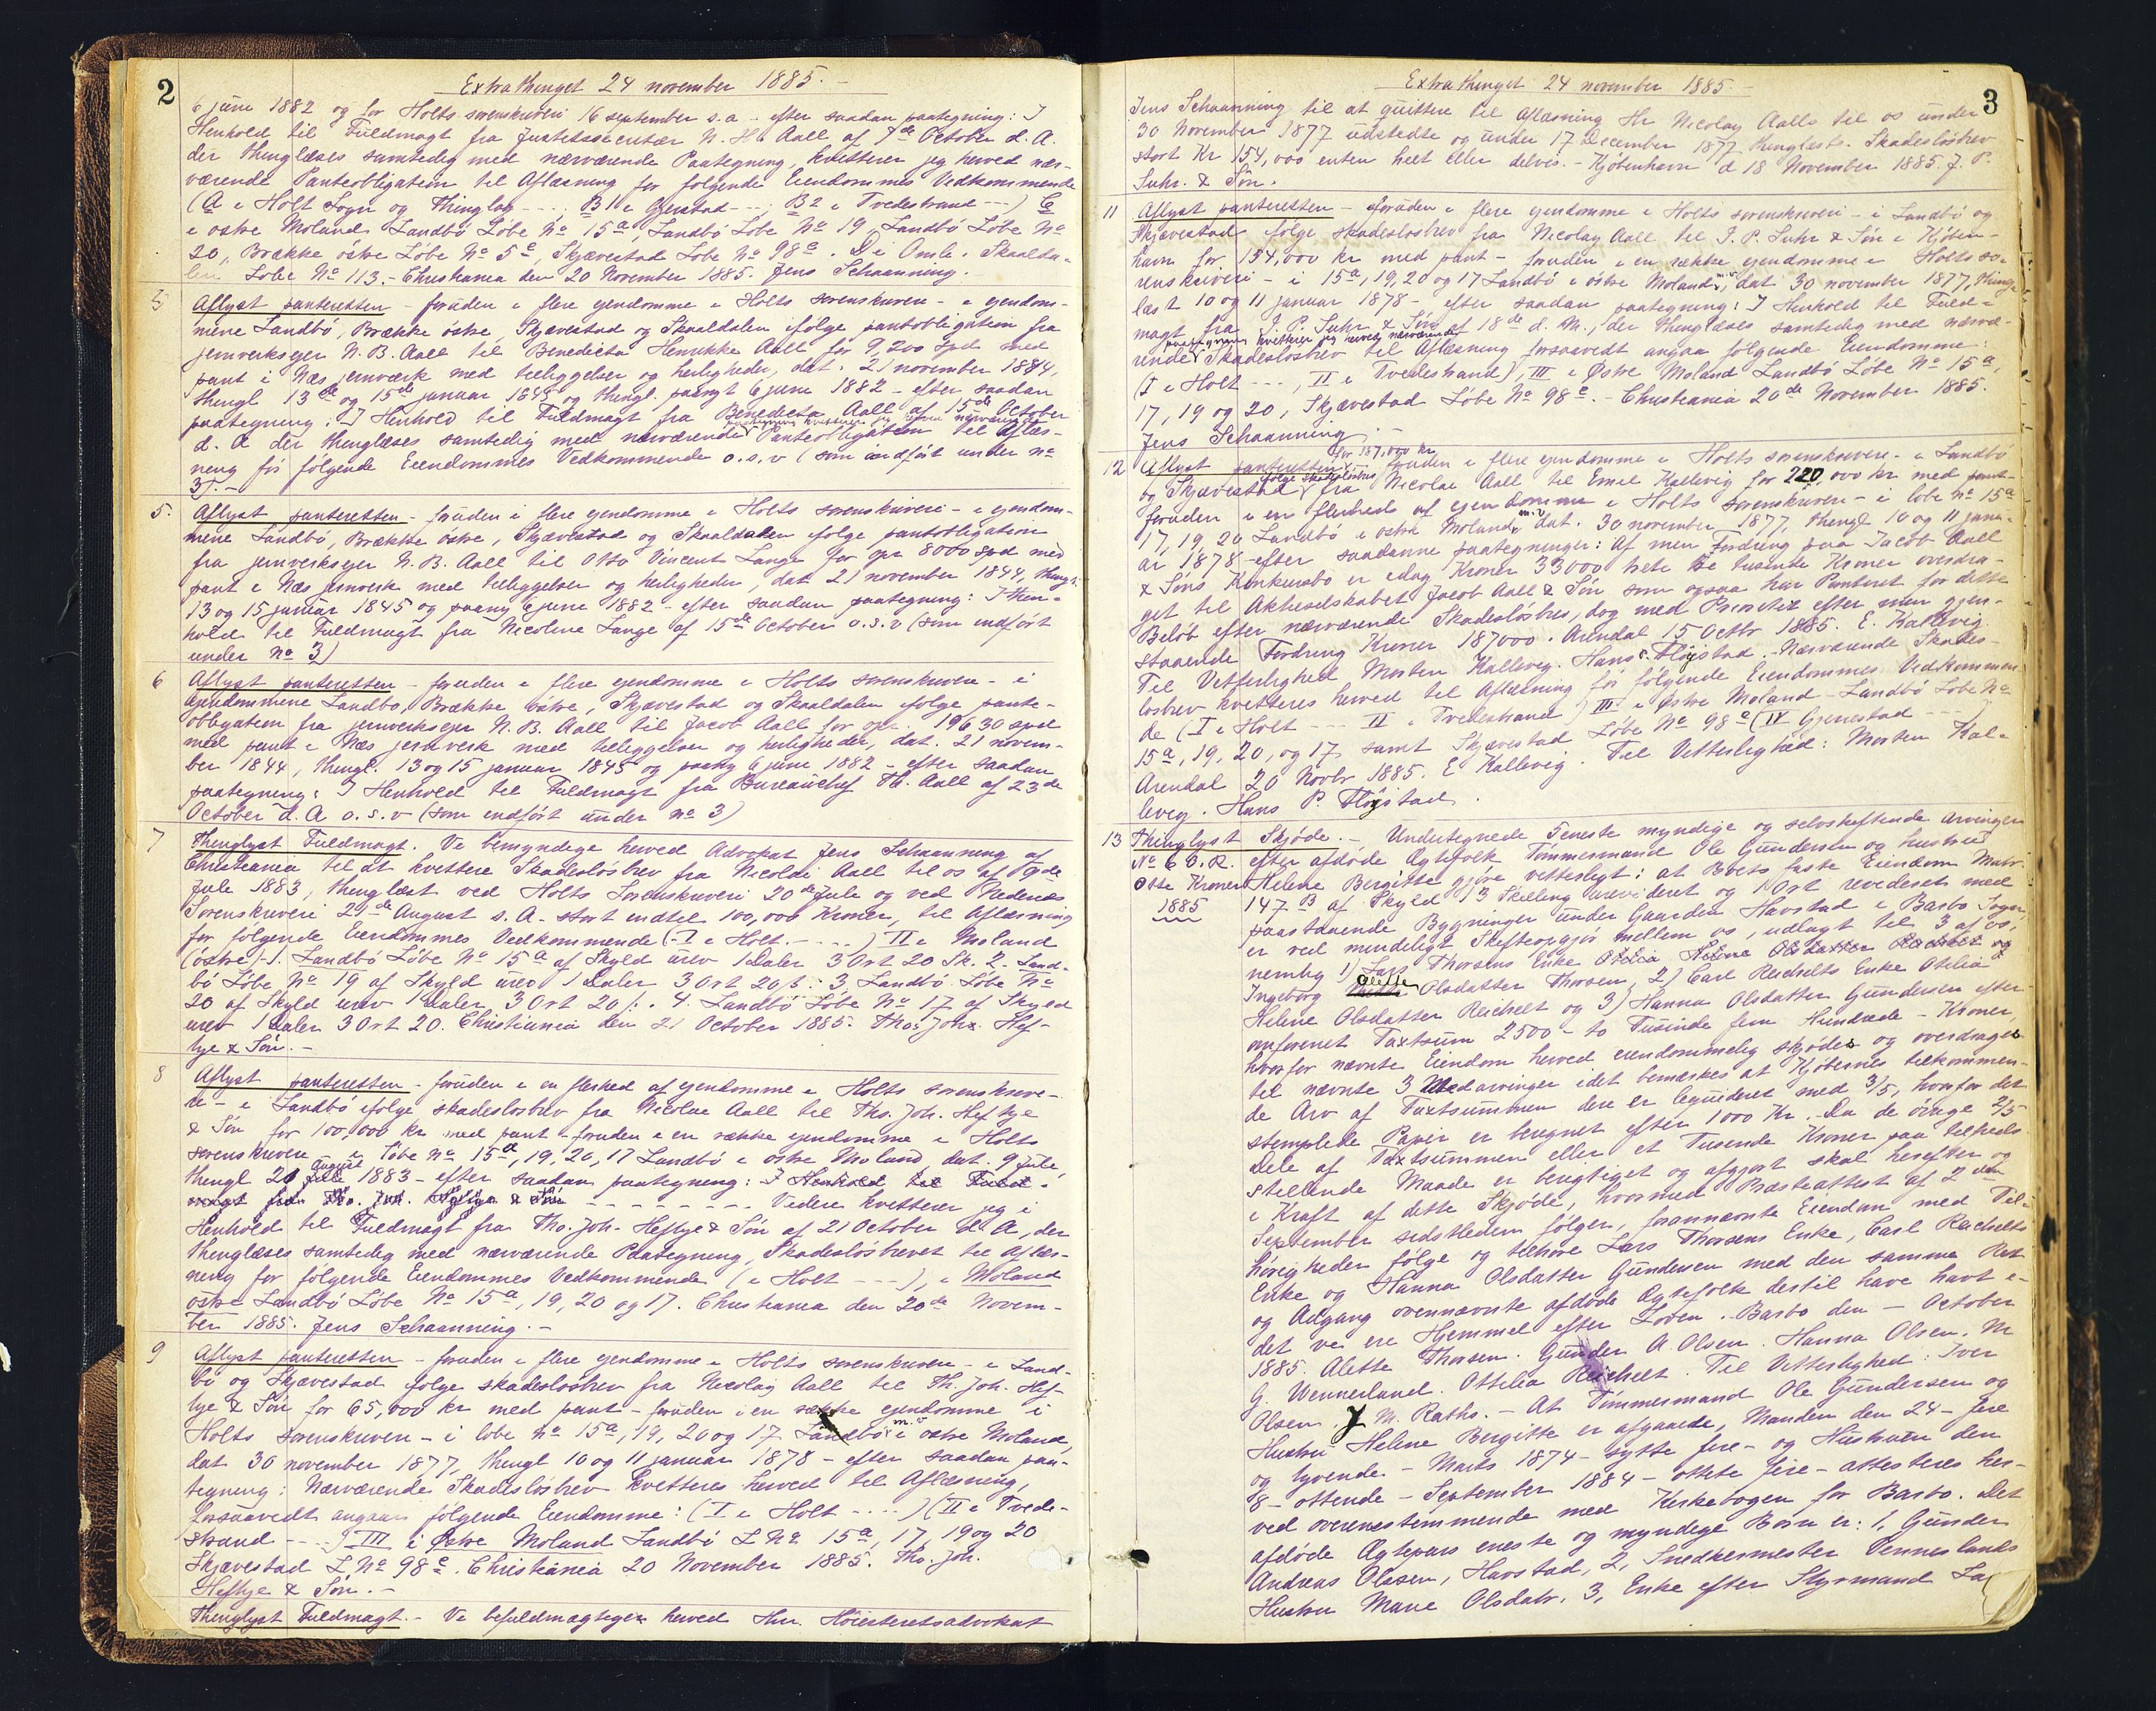 2
Extrathinget 24 november 1885.-
6 juni 1882 og for Holts sorenskriveri 16 september s.a - efter saadan paategning: I
Henhold til Fuldmagt fra Justitssecretær N. H. Aall af 7de October d. A.
der thinglæses samtidig med nærværende Paategning, kvitterer jeg herved nær-
værende Panteobligation til Aflæsning for følgende Eiendommes Vedkommende
(A i Holt Sogn og Thinglag - - - ; B1 i Gjerstad - - ; B2 i Tvedestrand - - ) C
i østre Moland Landbö Löbe No 15a, Landbö Löbe No 19 Landbö Löbe No
20, Brække östre Löbe No 5e, Skjævestad Löbe No 98e. D i Omli. Skaalda-
len Löbe No 113. - Christiania den 20 November 1885. Jens Schaanning.
Aflyst panteretten - foruden i flere ejendomme i Holts sorenskriveri - i ejendom-
mene Landbö, Brække östre, Skjævestad og Skaaldalen ifölge pantobligation fra
jernverksejer N. B. Aall til Benedicta Henrikke Aall for 9,200 spd med
pant i Næs jernværk med tilliggelser og herligheder, dat. 21 november 1844,
thingl 13de og 15de januar 1845 og thingl. paanyt 6 juni 1882 - efter saadan
paategning: I Henhold til Fuldmagt fra Benedicta Aall af 15de October
d. A der thinglæses samtidig med nærværende paategning kvitterer jeg herved nærværende Panteobligation til Aflæs-
ning for fölgende Eiendommes Vedkommende o.s.v (som indfört under no
3). -
5. Aflyst panteretten - foruden i flere ejendomme i Holts sorenskriveri - i ejendom-
mene Landbö, Brække östre, Skjævestad og Skaaldalen ifölge pantobligation
fra jernverksejer N. B. Aall til Otto Vincent Lange for opr 8000 spd med
pant i Næs jernverk med tilliggelser og herligheder, dat 21 november 1844, thingl.
13 og 15 januar 1845 og paany 6 juni 1882 - efter saadan paategning: I Hen-
hold til Fuldmagt fra Nicoline Lange af 15de October o.s.v (som indfört
under No 3)
6 Aflyst panteretten - foruden i flere ejendomme i Holts sorenskriveri - i
ejendommene Landbö, Brække östre, Skjævestad og Skaaldalen ifölge pante-
obligation fra jernverksejer N. B. Aall til Jacob Aall for opr. 19630 spd
med pant i Næs jernverk med tilliggelser og herligheder, dat. 21 novem-
ber 1844, thingl. 13 og 15 januar 1845 og paany 6 juni 1882 - efter saadan
paategning: I Henhold til Fuldmagt fra Bureauchef Th. Aall af 23de
October d. A o.s.v (som indfört under no 3)
7 Thinglyst Fuldmagt. Vi bemyndige herved Advokat Jens Schaanning af
Christiania til at kvittere Skadeslösbrev fra Nicolai Aall til os af 9de
Juli 1883, thinglæst ved Holts Sorenskriveri 20de Juli og ved Nedenæs
Sorenskriveri 21de August s. A. stort indtil 100,000 Kroner, til Aflæsning
for fölgende Eiendommes Vedkommende (- I i Holt. - - - ) II i Moland
(östre) - 1. Landbö Löbe No 15a af Skyld urev 1 Daler 3 Ort 20 Sk. 2. Land-
bö Löbe No 19 af Skyld urev 1 Daler 3 Ort 20 s. 3. Landbö Löbe No
20 af Skyld urev 1 Daler 3 Ort 20 s. 4. Landbö Löbe No 17 af Skyld
urev 1 Daler 3 Ort 20. Christiania den 21 October 1885. Tho. Joh. Hef-
tye & Sön. -
8 Aflyst panteretten - foruden i en flerhed af ejendomme i Holts sorenskrive-
ri - i Landbö ifölge skadeslosbrev fra Nicolai Aall til Tho. Joh. Heftye
& Sön for 100,000 kr med pant - foruden i en række ejendomme i Holts
sorenskriveri - i löbe No 15a, 19, 20, 17 Landbö i östre Moland, dat. 9 juli,
thingl 21 August 1883 - efter saadan paategning: I Henhold til Fuld-
magt fra Tho. Joh. Heftye & Sön - - - - - - - - Videre kvitterer jeg i
Henhold til Fuldmagt fra Tho. Joh. Heftye & Sön af 21 October d. A, der
thinglæses samtidig med nærværende Paategning, Skadeslösbrevet til Aflæs-
ning for fölgende Eiendommes Vedkommende (i Holt - - - ), i Moland
östre Landbö Löbe No 15a, 19, 20 og 17. Christiania den 20de Novem-
ber 1885. Jens Schaanning. -
9 Aflyst panteretten - foruden i flere ejendomme i Holts sorenskriveri - i Land-
bö og Skjævestad ifölge skadeslosbrev fra Nicolay Aall til Th. Joh. Hef-
tye & Sön for 65,000 kr med pant - foruden i en række ejendomme i
Holts sorenskriveri - i löbe No 15a, 19, 20 og 17 Landbö m.v i östre Moland,
dat 30 november 1877, thingl 10 og 11 januar 1878 - efter saadan paa-
tegning: Nærværende Skadeslösbrev kvitteres herved til Aflæsning,
forsaavidt angaar fölgende Eiendomme: (I i Holt - - - -) (II i Tvede-
strand - - - ) III i Östre Moland Landbö L No 15a, 17, 19 og 20
Skjævestad L No 98e. Christiania 20 November 1885. Tho. Joh.
Heftye & Sön. -
Thinglyst Fuldmagt. - Vi befuldmægtiger herved Hr. Höiesteretsadvokat
3
Extrathinget 24 november 1885. -
Jens Schaanning til at quittere til Aflæsning Hr Nicolay Aalls til os under
30 November 1877 udstedte og under 17 December 1877 thinglæste Skadeslösbrev
stort Kr 154,000 enten heelt eller delvis. - Kjöbenhavn d 18 November 1885. J. P.
Suhr. & Sön.
11 Aflyst panteretten - foruden i flere ejendomme i Holts sorenskriveri - i Landbö og
Skjævestad ifölge skadeslosbrev fra Nicolay Aall til J. P. Suhr & Sön i Kjöben-
havn for 154,000 kr med pant - foruden i en række ejendomme i Holts so-
renskriveri - i 15a, 19, 20 og 17 Landbö i östre Moland m.v, dat 30 november 1877, thing-
læst 10 og 11 januar 1878 - efter saadan paategning: I Henhold til Fuld-
magt fra J. P. Suhr & Sön af 18de d. M., der thinglæses samtidig med nærvæ-
rende paategning kvitterer jeg herved nærværende Skadeslösbrev til Aflæsning forsaavidt angaar fölgende Eiendomme:
(I i Holt - - - , II i Tvedestrand), III i Östre Moland Landbö Löbe No 15a,
17, 19 og 20, Skjævestad Löbe No 98e. - Christiania 20de November 1885.
Jens Schaanning. -
12 Aflyst panteretten for 187,000 kr - foruden i flere ejendomme i Holts sorenskriveri - i Landbö
og Skjævestad ifölge skadeslösbrev fra Nicolai Aall til Emil Kallevig for 220,000 kr med pant -
foruden i en flerhed af ejendomme i Holts sorenskriveri - i löbe No 15a
17, 19, 20 Landbö i östre Moland m.v dat. 30 november 1877, thingl 10 og 11 janu-
ar 1878 - efter saadanne paategninger: Af min Fordring paa Jacob Aall
& Söns Konkursbo er idag Kroner 33000 trete tre tusinde Kroner overdra-
get til Aktieselskabet Jacob Aall & Sön som ogsaa har Panteret for dette
Belöb efter nærværende Skadeslösbrev, dog med Prioritet efter min gjen-
staaende Fordring Kroner 187000. Arendal 15 Octbr 1885. E. Kallevig.
Til Vitterlighed Morten Kallevig. Hans P. Flöystad. - Nærværende Skades-
lösbrev kvitteres herved til Aflæsning for fölgende Eiendommes Vedkommen-
de (I i Holt - - - II i Tvedestrand) III i Östre Moland - Landbö Löbe No
15a, 19, 20, og 17 samt Skjævestad Löbe No 98e (IV Gjerrestad - - - )
Arendal 20 Novbr 1885. E Kallevig. Til Vitterlighed: Morten Kal-
levig. Hans P. Flöystad.
13 Thinglyst Skjöde. - Undertegnede eneste myndige og selvskiftende Arvinger
No 6 O.R. efter afdöde Ægtefolk Tömmermand Ole Gundersen og Hustru
Otte Kroner Helene Bergitte gjöre vitterligt: at Boets faste Eiendom Matr
1885 147 B af Skyld 13 Skilling urevideret og 1 Ort revideret med
paastaaende Bygninger under Gaarden Havstad i Barbo Sogn,
er ved mindeligt Skifteopgjör mellem os, udlagt til 3 af os,
nemlig 1) Lars Thorsens Enke Otelia Helene Olsdatter Reichelt og
Ingeborg Alette Olsdatter Thorsen, 2) Carl Reichelts Enke Otelia
Helene Olsdatter Reichelt og 3) Hanna Olsdatter Gundersen efter
omforenet Taxtsum 2500 - to Tusinde fem Hundrede - Kroner,
hvorfor nævnte Eiendom herved eiendommelig skjödes og overdrages
til nævnte 3 Medarvinger idet bemærkes at Kjöbernes tilkommen-
de Arv af Taxtsummen dere er liqvideret med 3/5, hvorfor det
stemplede Papir er beregnet efter 1000 Kr. Da de övrige 2/5
Dele af Taxtsummen eller et Tusinde Kroner paa tilfreds
stillende Maade er berigtiget og afgjort skal herefter og
i Kraft af dette Skjöde, hvormed Bræsteattest af 2den
September sidstleden fölger, forannævnte Eiendom med Til-
hörigheder fölge og tilhöre Lars Thorsens Enke, Carl Reichelts
Enke og Hanna Olsdatter Gundersen med den samme Ret
og Adgang ovennævnte afdöde Ægtefolk dertil have havt i-
det vi ere Hjemmel efter Loven. Barbo den - October
1885. Alette Thorsen. Gunder A. Olsen. Hanna Olsen. M
G. Wennerland. Ottilia Reichelt. Til Vitterlighed: Iver
Olsen. J M. Raths. - At Tömmermand Ole Gundersen og
Hustru Helene Bergitte er afgaaede, Manden den 24 - fire
og tyvende - Marts 1874 - sytti fire - og Hustruen den
8 - ottende - September 1884 - ottete fire - attesteres her-
ved overenestemmende med Kirkebogen for Barbo. Det
afdöde Ægtepars eneste og myndige Börn er: 1, Gunder
Andreas Olssen, Havstad, 2, Snedkermester Venneslands
Hustru Marie Olsdatr. 3, Enke efter Styrmand La